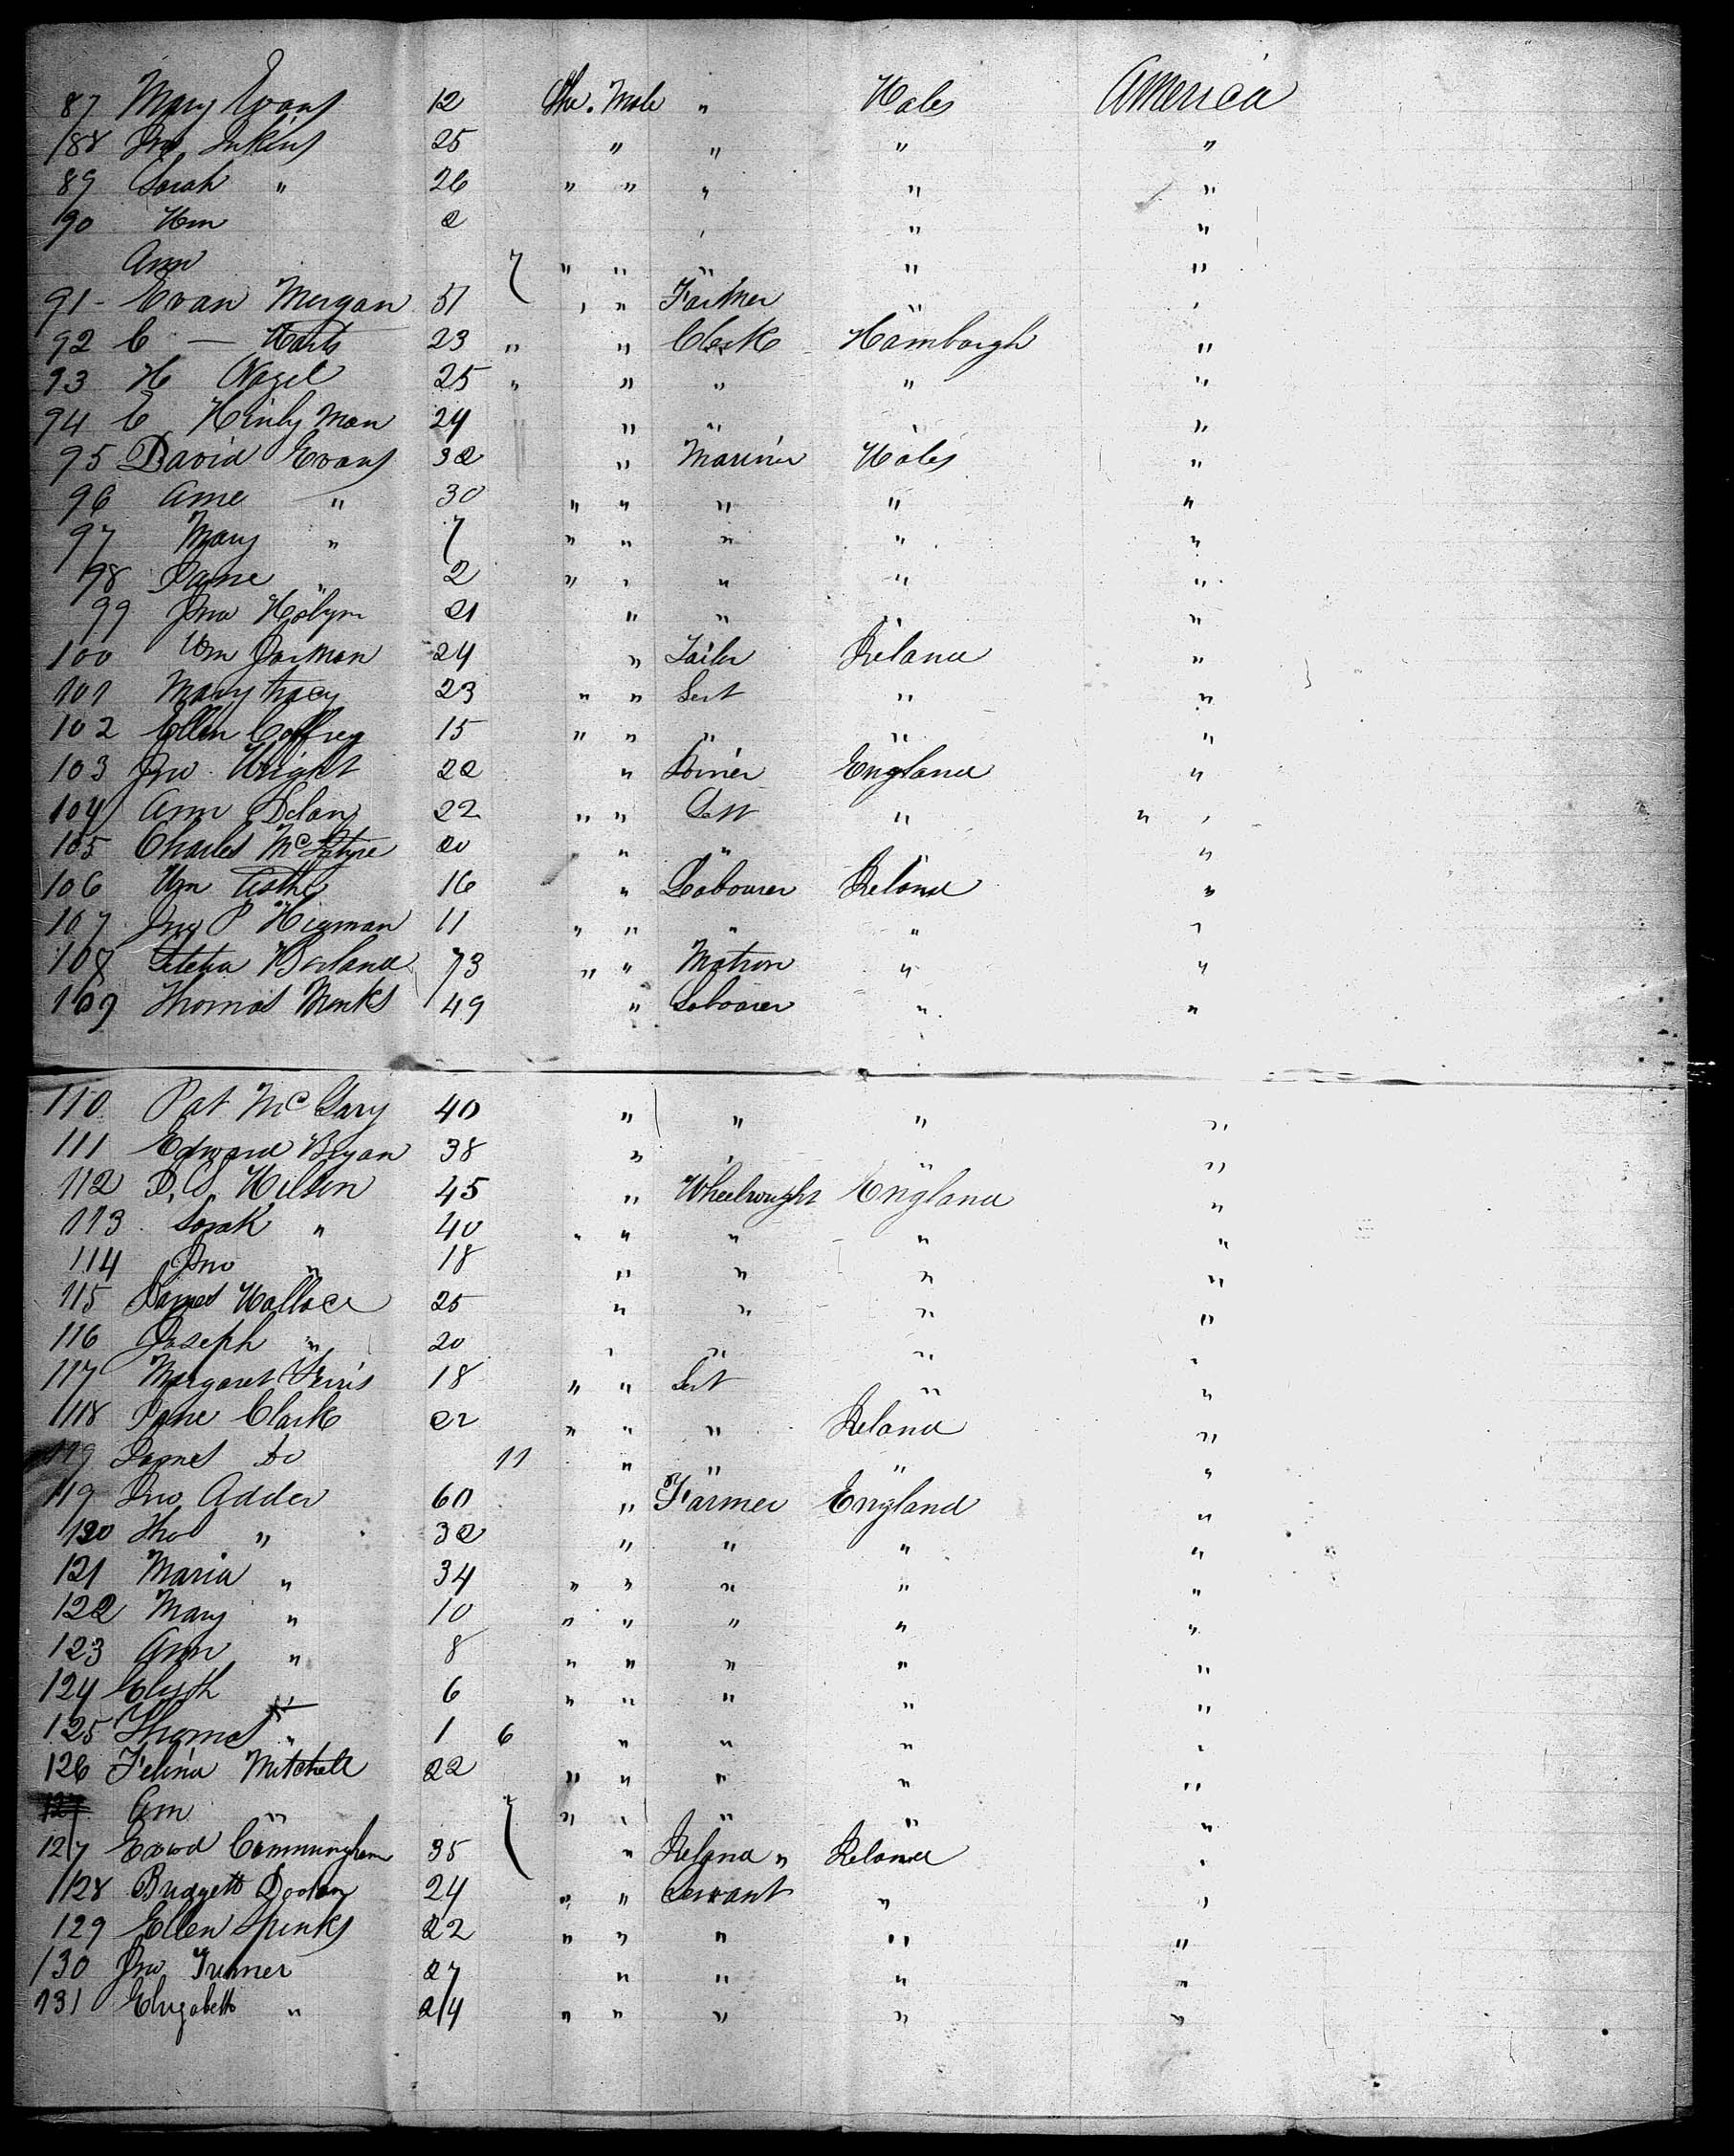 87 Mary Evans 12 She. Male " Wales America
88 Jno Jnkins 25 " " " "
89 Sarah " 26 " " " " "
90 Wm 2 " " "
Ann 7 " " " " "
91 - Evan Morgan 51 " " Farmer " "
92 C — 23 " " Clerk Hamburgh "
93 H Nagel 25 " " " " "
94 C Hinlyman 24 " " " "
95 David Evans 32 " Mariner Wales "
96 Ame " 30 " " " " "
97 Mary " 7 " " " " "
98 Jane " 2 " " " " "
99 Jno 21 " " " "
100 Wm Jarman 24 " Tailer Ireland "
101 Mary Tracy 23 " " Sert " "
102 Ellen Coffrey 15 " " " " "
103 Jno Wright 22 " Joiner England "
104 Ann Dolan 22 " " Sert " " "
105 Charles McIntyre 20 " " " "
106 Wm 16 " Labourer Ireland "
107 Jno P Higman 11 " " " " "
108 Letetia Borland 73 " " Matron " "
109 Thomas Monks 49 " Labourer " "
110 Pat McGary 40 " " " "
111 Edward Bryan 38 " " " "
112 D. S. Wilson 45 " Wheelwright England "
113 Sarah " 40 " " " " "
114 Jno " 18 " " " "
115 James Wallace 25 " " " "
116 Joseph " 20 " " " "
117 Margaret Ferris 18 " " Sert " "
118 Jane Clark 22 " " " Ireland "
119 James do 11 " " " "
119 Jno Adder 60 " Farmer England "
120 Tho " 32 " " " "
121 Maria " 34 " " " " "
122 Mary " 10 " " " " "
123 Ann " 8 " " " " "
124 Elizth " 6 " " " " "
125 Thomas " 1 6 " " " "
126 Felina Mitchell 22 " " " " "
127 Am " 7 " " " " "
127 Edwd Cunningham 35 " Ireland " Ireland "
128 Bridgett Doolan 24 " " Servant " "
129 Ellen Spinks 22 " " " " "
130 Jno Turner 27 " " " "
131 Elizabeth " 24 " " " " "